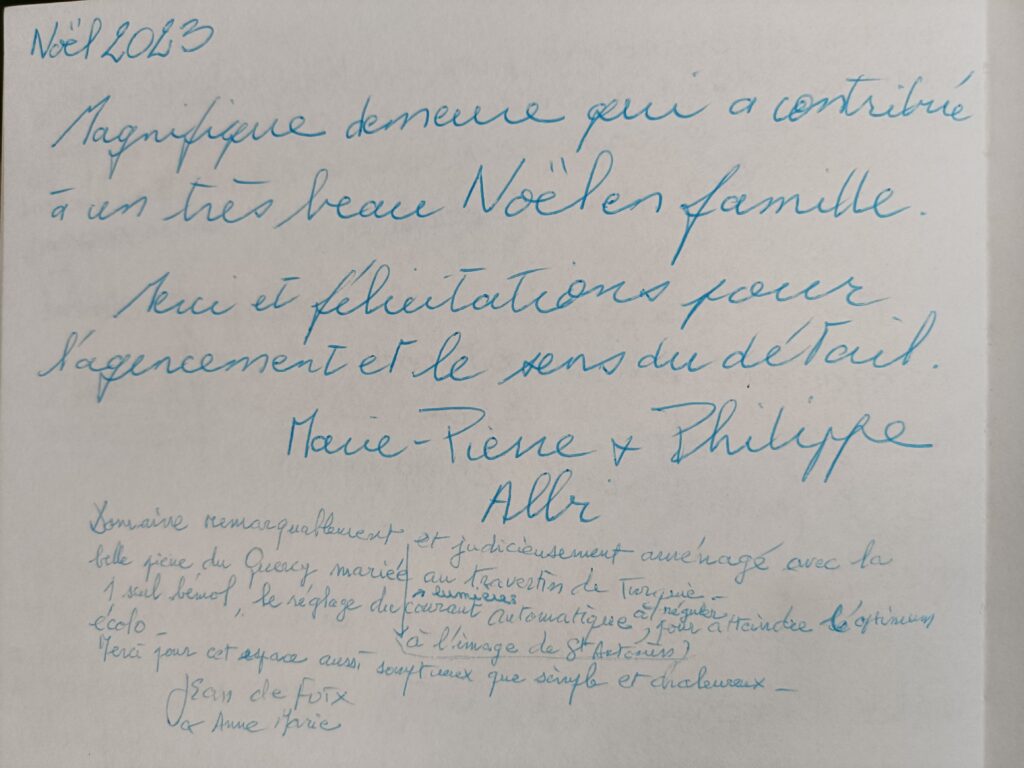 Noël 2023
Magnifique demeure qui a contribué
à un très beau Noël en famille.
Merci et félicitations pour
l'agencement et le sens du détail.
Marie-Pierre & Philippe
Albi
Domaine remarquablement et judicieusement aménagé avec la
belle pierre du Quercy mariée au travertin de Turquie -
lumières à réguler
1 seul bémol, le réglage du courant automatique, pour atteindre l'optimum
écolo -
à l'image de St Antonin)
Merci pour cet espace aussi somptueux que simple et chaleureux -
Jean de Foix
& Anne Marie